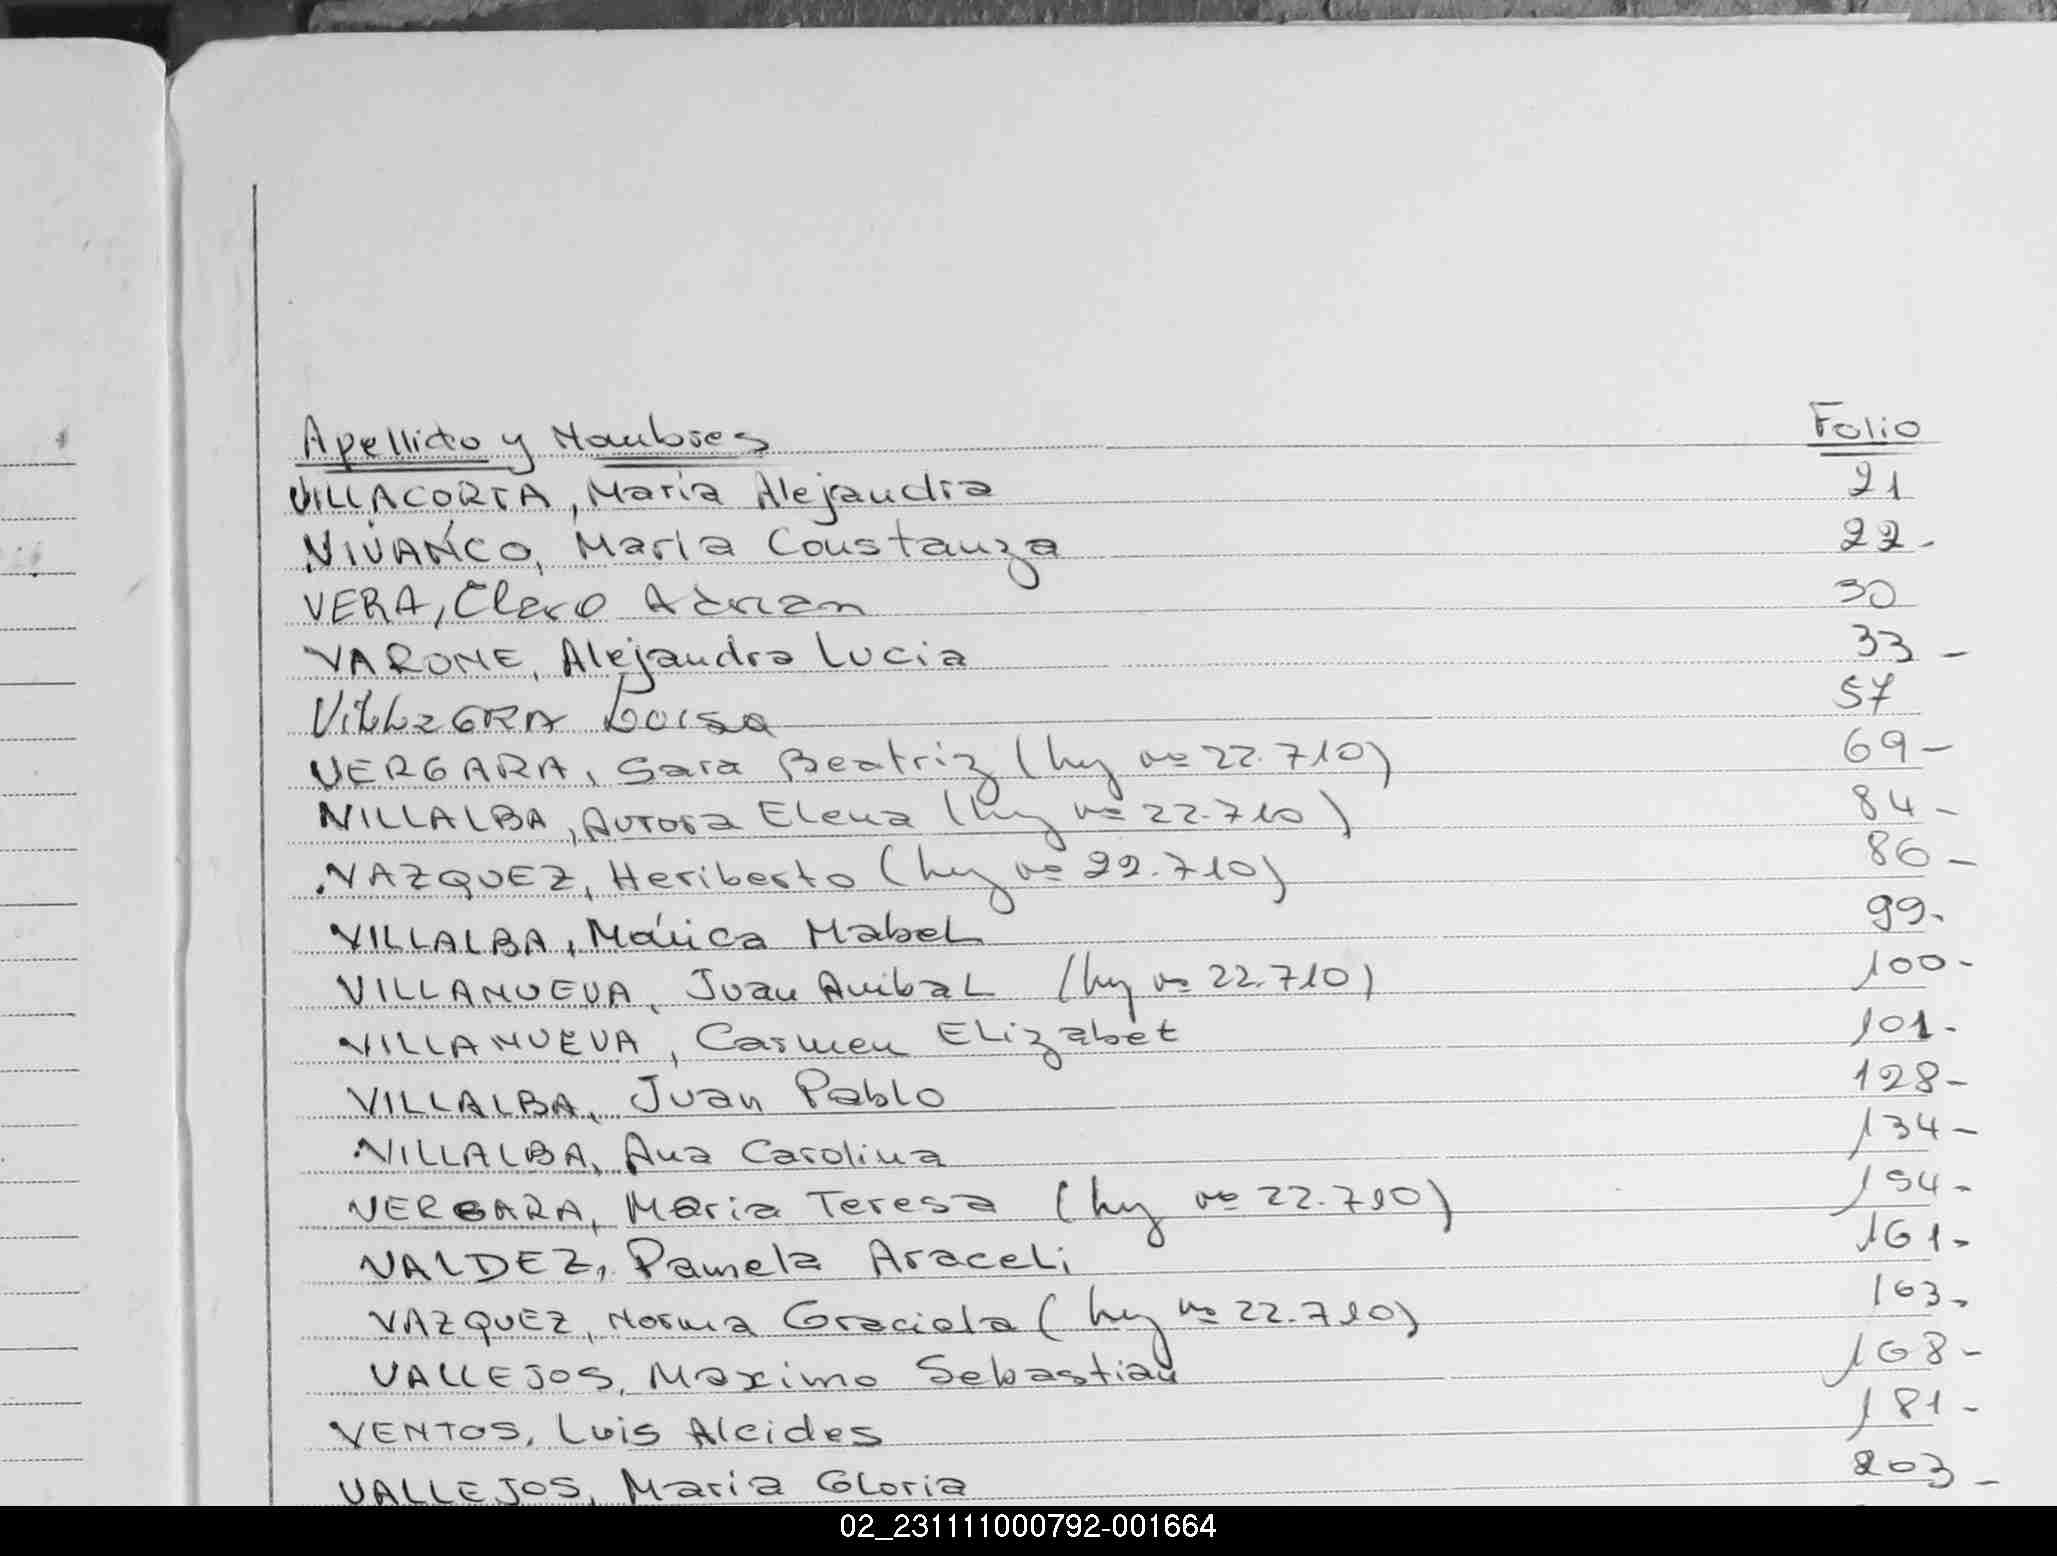 Apellido y Nombres Folio
VILLACORTA, María Alejandra 21
VIVANCO, María Constanza 22-
VERA, Claro Adrian 30
VARONE, Alejandra Lucia 33-
Luisa 57
VERGARA, Sara Beatriz (ley nº 22.710) 69-
VILLALBA, Aurora Elena (ley nº 22.710) 84-
VAZQUEZ, Heriberto (ley nº 22.710) 86-
VILLALBA, Mónica Mabel 99-
VILLANUEVA, Juan Anibal (ley nº 22.710) 100-
VILLANUEVA, Carmen Elizabet 101-
VILLALBA, Juan Pablo 128-
VILLALBA, Ana Carolina 134-
VERGARA, Maria Teresa (ley nº 22.710) 154-
VALDEZ, Pamela Araceli 161-
VAZQUEZ, Norma Graciela (ley nº 22.710) 163-
VALLEJOS, Maximo Sebastian 168-
VENTOS, Luis Alcides 181-
VALLEJOS, María Gloria 203-
02_231111000792-001664